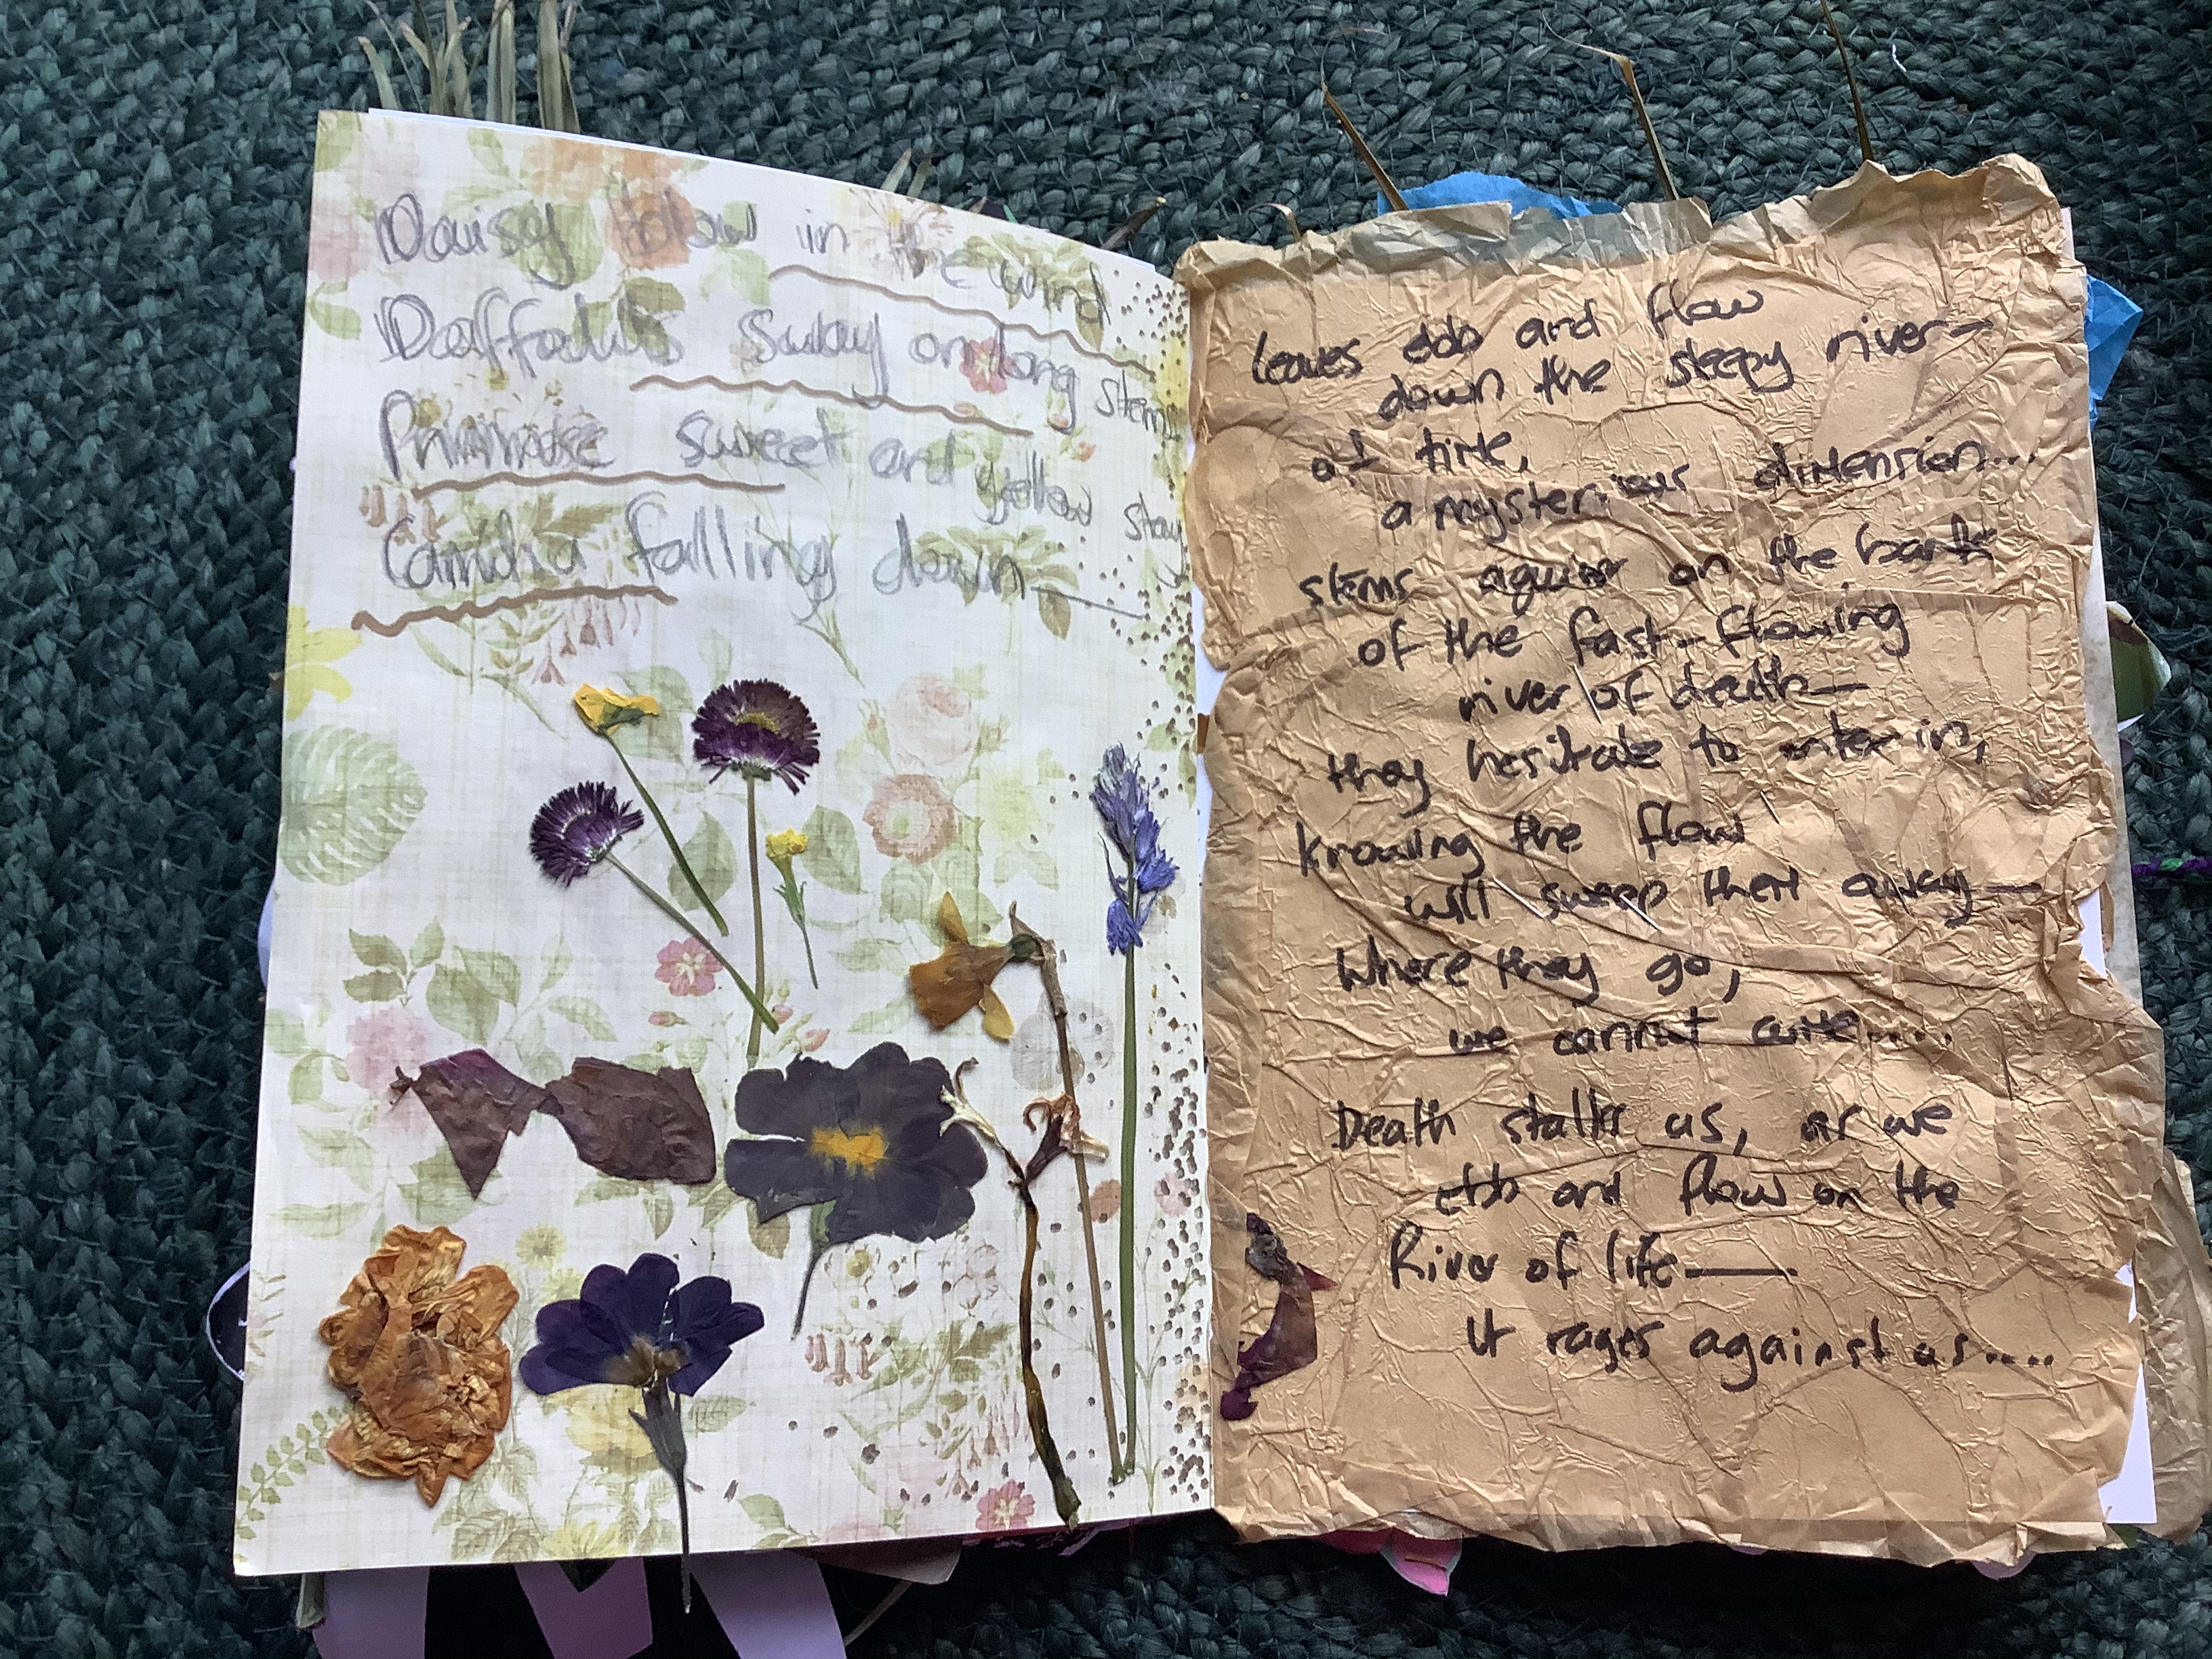 Daisy blow in the wind
Daffodils sway on long stems
Primrose sweet and yellow stay
falling down
leaves ebb and flow
down the sleepy river
of time,
a mysterious dimension...
stems on the bank
of the fast-flowing
river of death—
they hesitate to enter in,
knowing the flow
will sweep them away—
Where they go,
we cannot
Death stalks us, as we
ebb and flow on the
River of life—
It rages against us....